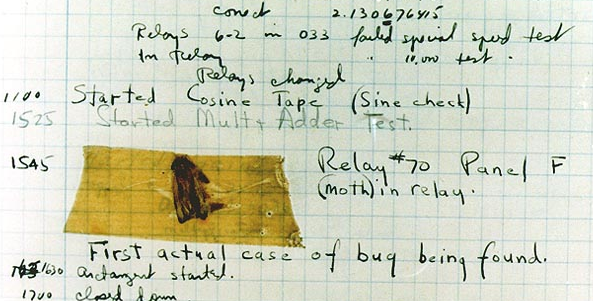 conect 2.130676415
Relays 6-2 in 033 failed special speed test
In Relay " 10,000 test.
Relays changed
1100 Started Cosine Tape (Sine check)
1525 Started Mult + Adder Test.
1545 Relay #70 Panel F
(moth) in relay.
First actual case of bug being found.
1630 arctangent started.
1700 closed down.